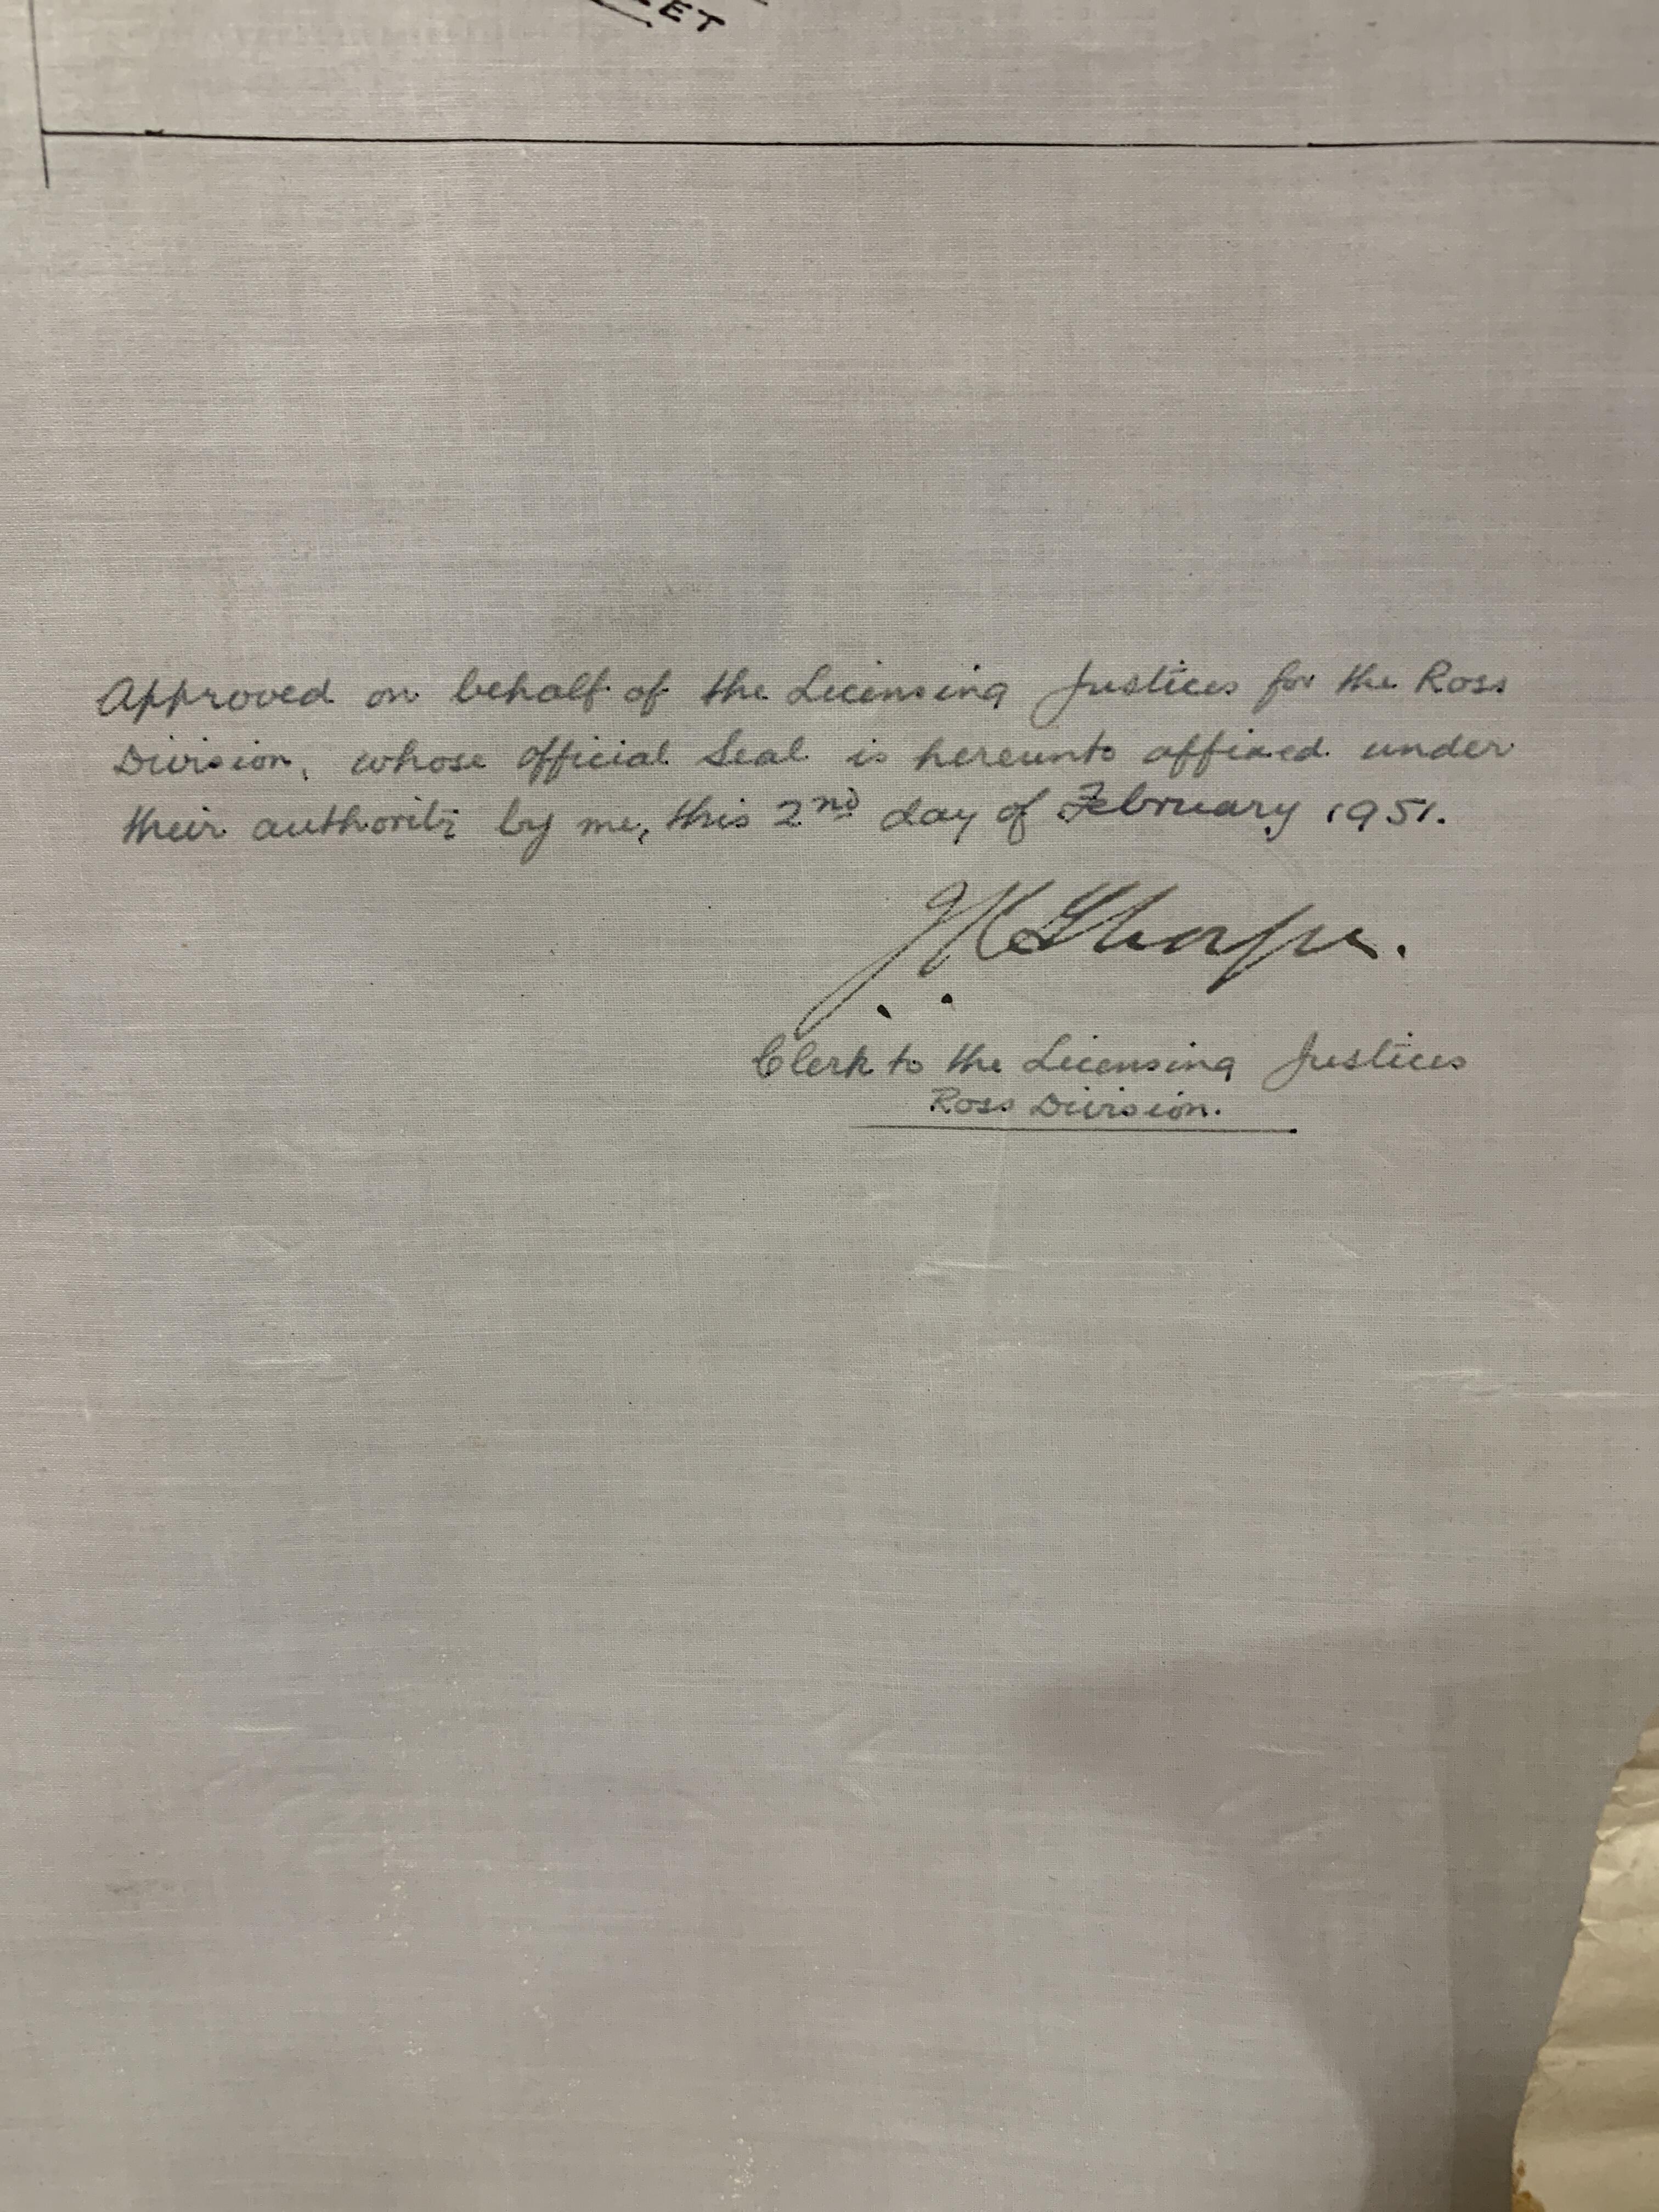 Approved on behalf of the Licensing Justices for the Ross
Division, whose official Seal is hereunto affixed under
their authority by me, this 2nd day of February 1951.
Clerk to the Licensing Justices
Ross Division.